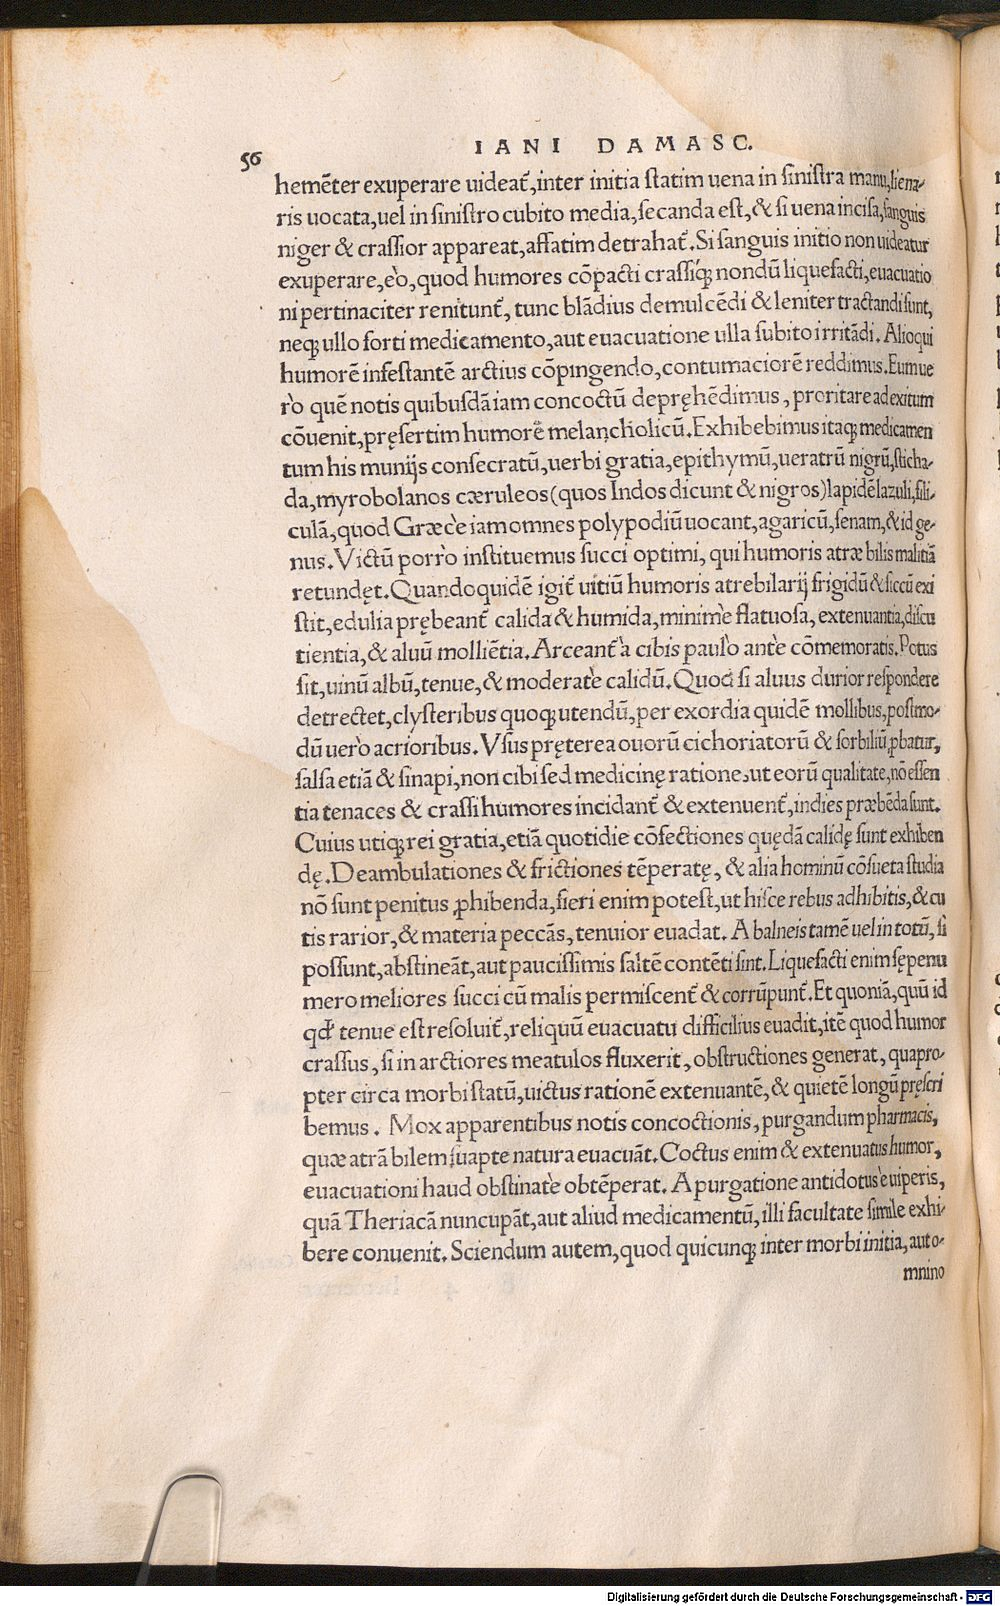 56 IANI DAMASC.
hemẽter exuperare uideat̃, inter initia ſtatim uena in ſiniſtra manu, liena-
ris uocata, uel in ſiniſtro cubito media, ſecanda eſt, & ſi uena inciſa, ſanguis
niger & craſſior appareat, affatim detrahat̃. Si ſanguis initio non uideatur
exuperare, eò, quod humores cõpacti craſſiq́ꝫ nondũ liquefacti, euacuatio
ni pertinaciter renitunt̃, tunc blãdius demulcẽdi & leniter tractandi ſunt,
neqꝫ ullo forti medicamento, aut euacuatione ulla ſubito irritãdi. Alioqui
humorẽ infeſtantẽ arctius cõpingendo, contumaciorẽ reddimus. Eum ue
rò quẽ notis quibuſdã iam concoctũ depręhẽdimus, proritare ad exitum
cõuenit, pręſertim humorẽ melancholicũ. Exhibebimus itaqꝫ medicamen
tum his munijs conſecratũ, uerbi gratia, epithymũ, ueratrũ nigrũ, ſticha-
da, myrobolanos cæruleos (quos Indos dicunt & nigros) lapidẽ lazuli, fili-
culã, quod Græcè iam omnes polypodiũ uocant, agaricũ, ſenam, & id ge-
nus. Victũ porrò inſtituemus ſucci optimi, qui humoris atræ bilis malitiã
retundęt. Quandoquidẽ igit̃ uitiũ humoris atrebilarij frigidũ & ſiccũ exi
ſtit, edulia prębeant̃ calida & humida, minimè flatuoſa, extenuantia, diſcu
tientia, & aluũ molliẽtia. Arceant̃ à cibis paulò antè cõmemoratis. Potus
ſit, uinũ albũ, tenue, & moderatè calidũ. Quod ſi aluus durior reſpondere
detrectet, clyſteribus quoqꝫ utendũ, per exordia quidẽ mollibus, poſtmo-
dũ uerò acrioribus. Vſus pręterea ouorũ cichoriatorũ & ſorbiliũ ꝓbatur,
ſalſa etiã & ſinapi, non cibi ſed medicinę ratione, ut eorũ qualitate, nõ eſſen
tia tenaces & craſſi humores incidant̃ & extenuent̃, indies præbẽda ſunt.
Cuius utiqꝫ rei gratia, etiã quotidie cõfectiones quędã calidę ſunt exhiben
dę. Deambulationes & frictiones tẽperatę, & alia hominũ cõſueta ſtudia
nõ ſunt penitus ꝓhibenda, fieri enim poteſt, ut hiſce rebus adhibitis, & cu
tis rarior, & materia peccãs, tenuior euadat. A balneis tamẽ uel in totũ, ſi
poſſunt, abſtineãt, aut pauciſſimis ſaltẽ contẽti ſint. Liquefacti enim ſępenu
mero meliores ſucci cũ malis permiſcent̃ & corrũpunt̃. Et quoniã, quũ id
qđ tenue eſt reſoluit̃, reliquũ euacuatu difficilius euadit, itẽ quod humor
craſſus, ſi in arctiores meatulos fluxerit, obſtructiones generat, quapro-
pter circa morbi ſtatũ, uictus rationẽ extenuantẽ, & quietẽ longũ pręſcri
bemus. Mox apparentibus notis concoctionis, purgandum pharmacis,
quæ atrã bilem ſuapte natura euacuãt. Coctus enim & extenuatus humor,
euacuationi haud obſtinatè obtẽperat. A purgatione antidotus è uiperis,
quã Theriacã nuncupãt, aut aliud medicamentũ, illi facultate ſimile exhi-
bere conuenit. Sciendum autem, quod quicunqꝫ inter morbi initia, aut o-
mnino
Digitalisierung gefördert durch die Deutsche Forschungsgemeinschaft - DFG